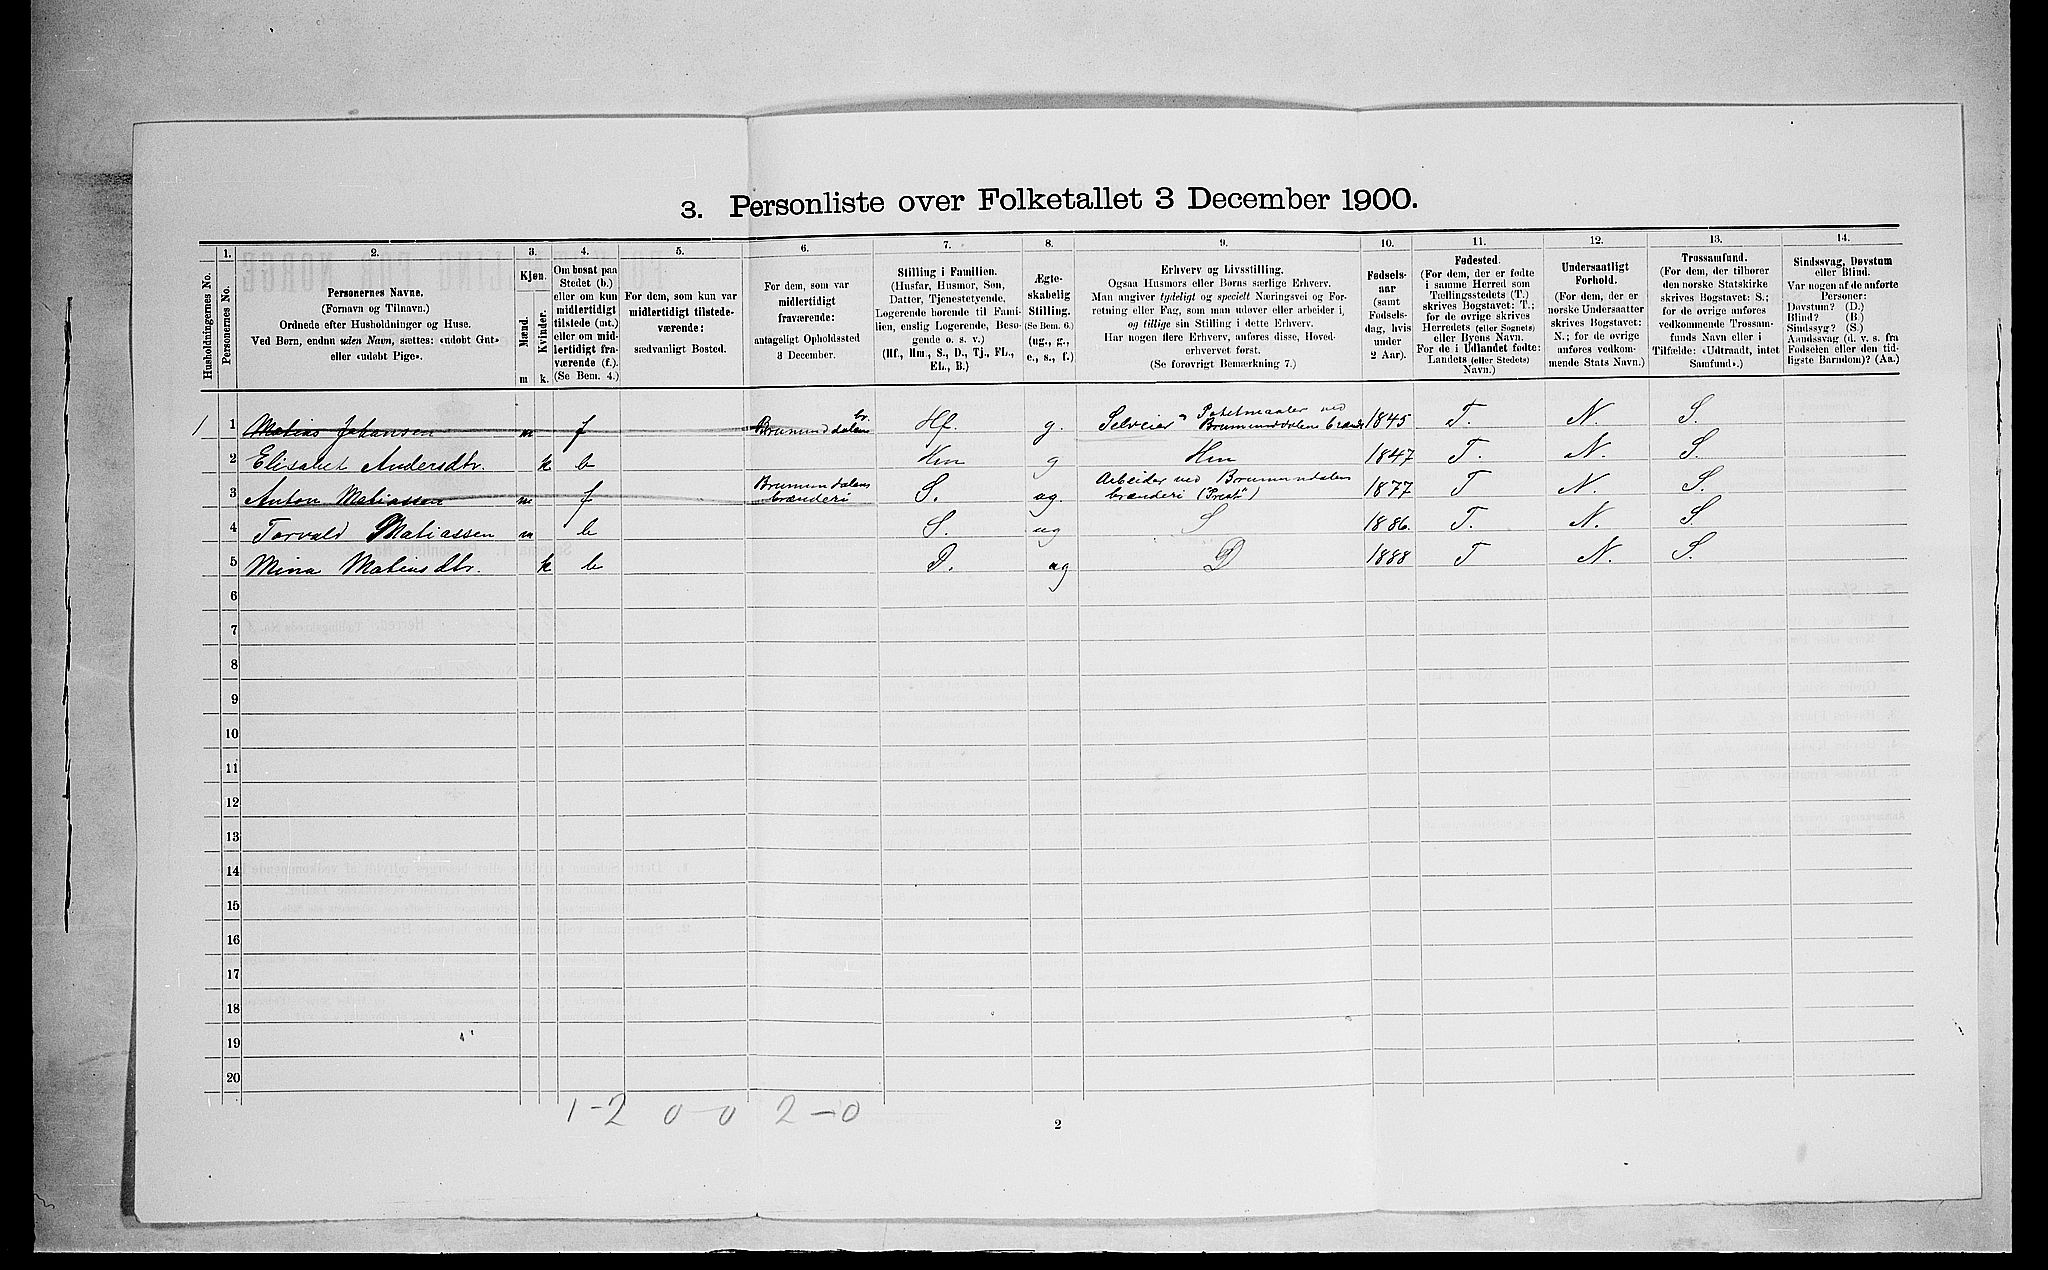 3. Personliste over Folketallet 3 December 1900.
1. 2. 3. 4. 5. 6. 7. 8. 9. 10. 11. 12. 13. 14.
Husholdningernes No.
Personernes No.
Personernes Navne.
(Fornavn og Tilnavn.)
Ordnede efter Husholdninger og Huse.
Ved Børn, endnu uden Navn, sættes: «udøbt Gut»
eller «udøbt Pige».
Kjøn.
Mænd.
Kvinder.
m k.
Om bosat paa
Stedet (b.)
eller om kun
midlertidigt
tilstede (mt.)
eller om mid-
lertidigt fra-
værende (f.).
(Se Bem. 4.)
For dem, som kun var
midlertidigt tilstede-
værende:
sædvanligt Bosted.
For dem, som var
midlertidigt
fraværende:
antageligt Opholdssted
3 December.
Stilling i Familien.
(Husfar, Husmor, Søn,
Datter, Tjenestetyende,
Logerende hørende til Fami-
lien, enslig Logerende, Besø-
gende o. s. v.)
(Hf., Hm., S., D., Tj., FL.,
EL., B.)
Ægte-
skabelig
Stilling.
(Se Bem. 6.)
(ug., g.,
e., s., f.)
Erhverv og Livsstilling.
Ogsaa Husmors eller Børns særlige Erhverv.
Man angiver tydeligt og specielt Næringsvei og For-
retning eller Fag, som man udøver eller arbeider i,
og tillige sin Stilling i dette Erhverv.
Har nogen flere Erhverv, anføres disse, Hoved-
erhvervet først.
(Se forøvrigt Bemærkning 7.)
Fødsels-
aar
(samt
Fødsels-
dag, hvis
under
2 Aar).
Fødested.
(For dem, der er fødte
i samme Herred som
Tællingsstedets (T.)
skrives Bogstavet: T.;
for de øvrige skrives
Herredets (eller Sognets)
eller Byens Navn.
For de i Udlandet fødte:
Landets (eller Stedets)
Navn.)
Undersaatligt
Forhold.
(For dem, der er
norske Undersaatter
skrives Bogstavet:
N.; for de øvrige
anføres vedkom-
mende Stats Navn.)
Trossamfund.
(For dem, der tilhører
den norske Statskirke
skrives Bogstavet: S.;
for de øvrige anføres
vedkommende Trossam-
funds Navn eller i
Tilfælde: «Udtraadt, intet
Samfund».)
Sindssvag, Døvstum
eller Blind.
Var nogen af de anførte
Personer:
Døvstum? (D.)
Blind? (B.)
Sindssyg? (S.)
Aandssvag (d. v. s. fra
Fødselen eller den tid-
ligste Barndom)? (Aa.)
1 1 Matias Johansen m f Brumunddalens br. Hf. g. Selveier Potetmaaler ved Brumunddalens brænd 1845 T. N. S.
2 Elisabet Andersdtr. k b Hm g Hm 1847 T. N. S.
3 Anton Matiassen m f Brumundalens brænderi S. ug. Arbeider ved Brumundalens brænderi 1877 T N. S.
4 Torvald Matiassen m b S. ug S 1886. T. N. S
5 Mina Matiasdtr. k b D. ug D 1888 T N. S.
6
7
8
9
10
11
12
13
14
15
16
17
18
19
20
1-2 0-0 2-0
2